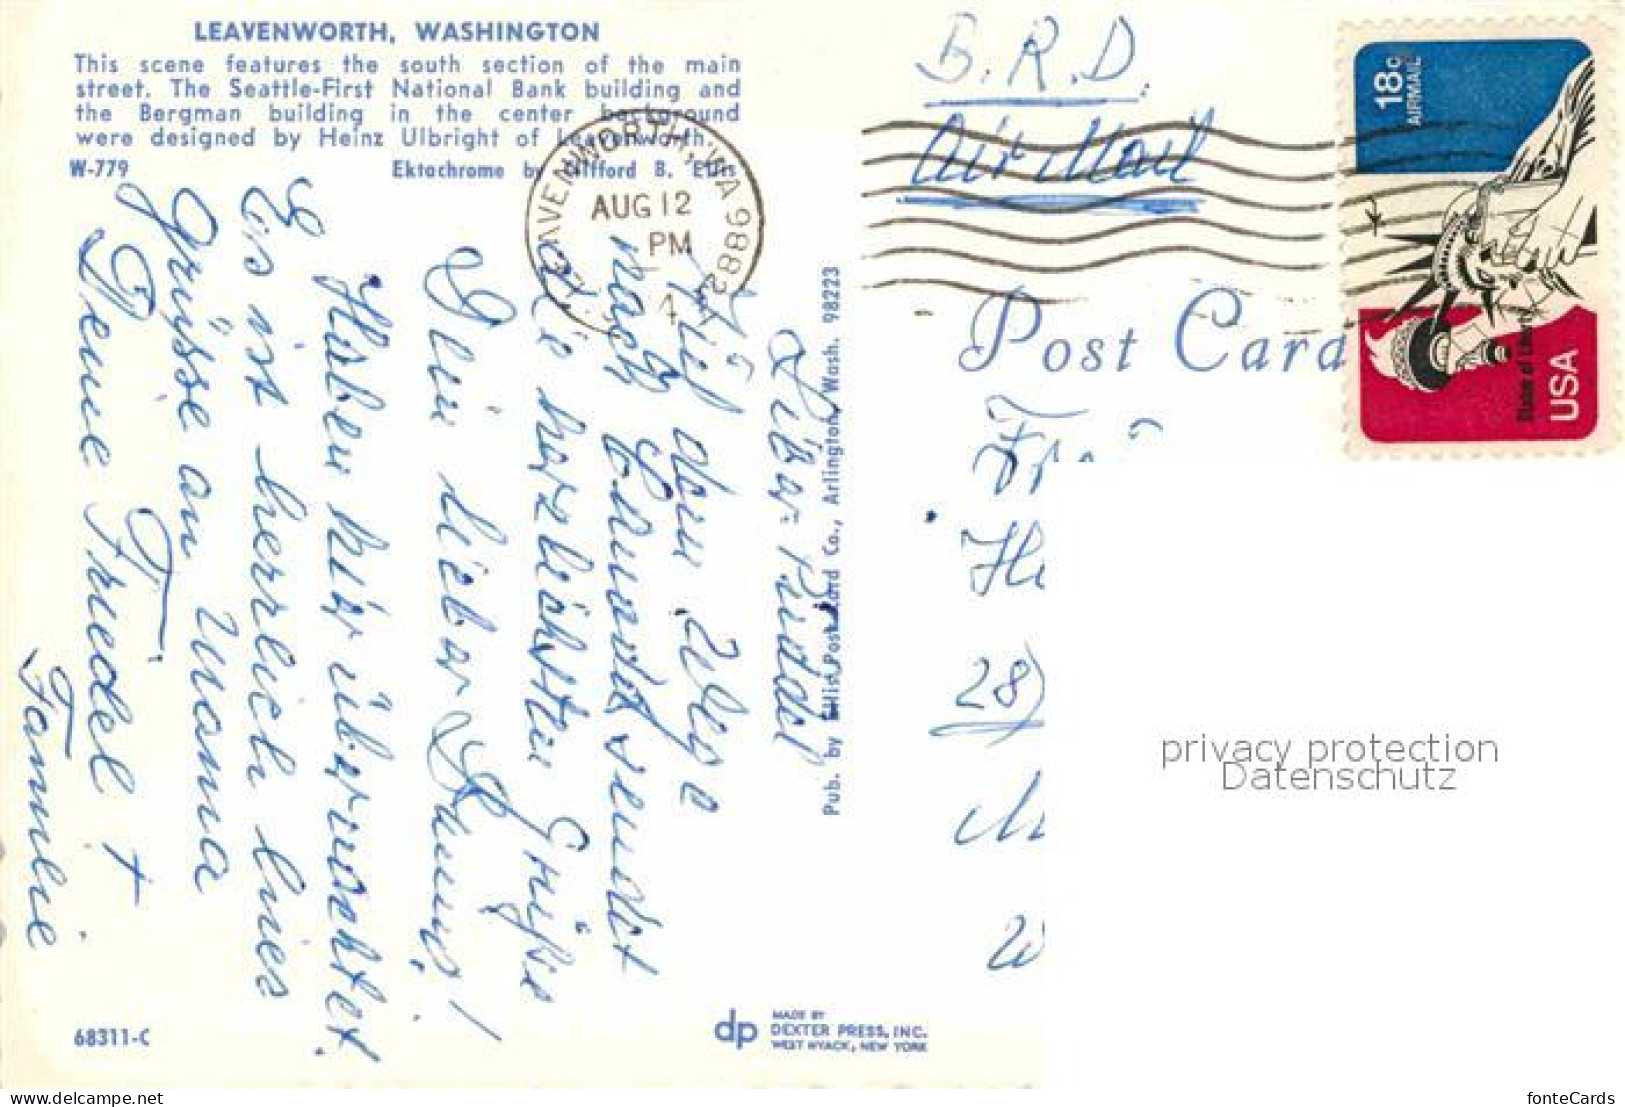 LEAVENWORTH, WASHINGTON
This scene features the south section of the main
street. The Seattle-First National Bank building and
the Bergman building in the center background
were designed by Heinz Ulbright of Leavenworth.
W-779
Ektachrome by Clifford B. Ellis
LEAVENWORTH, WA 98822
AUG 12
PM
B.R.D.
Air Mail
18c
AIRMAIL
Statue of Liberty
USA
Post Card
Auf dem Wege
nach Edmonds sendet
die herzlichsten Grüße
Dein lieber
Haben hier übernachtet.
Es ist herrlich hier
Grüsse an Mama
Deine Friedel +
Familie
Pub. by Ellis Post Card Co., Arlington, Wash. 98223
28)
privacy protection
Datenschutz
68311-C
dp
MADE BY
DEXTER PRESS, INC.
WEST NYACK, NEW YORK
www.ak-ansichtskarten.de
fonteCards